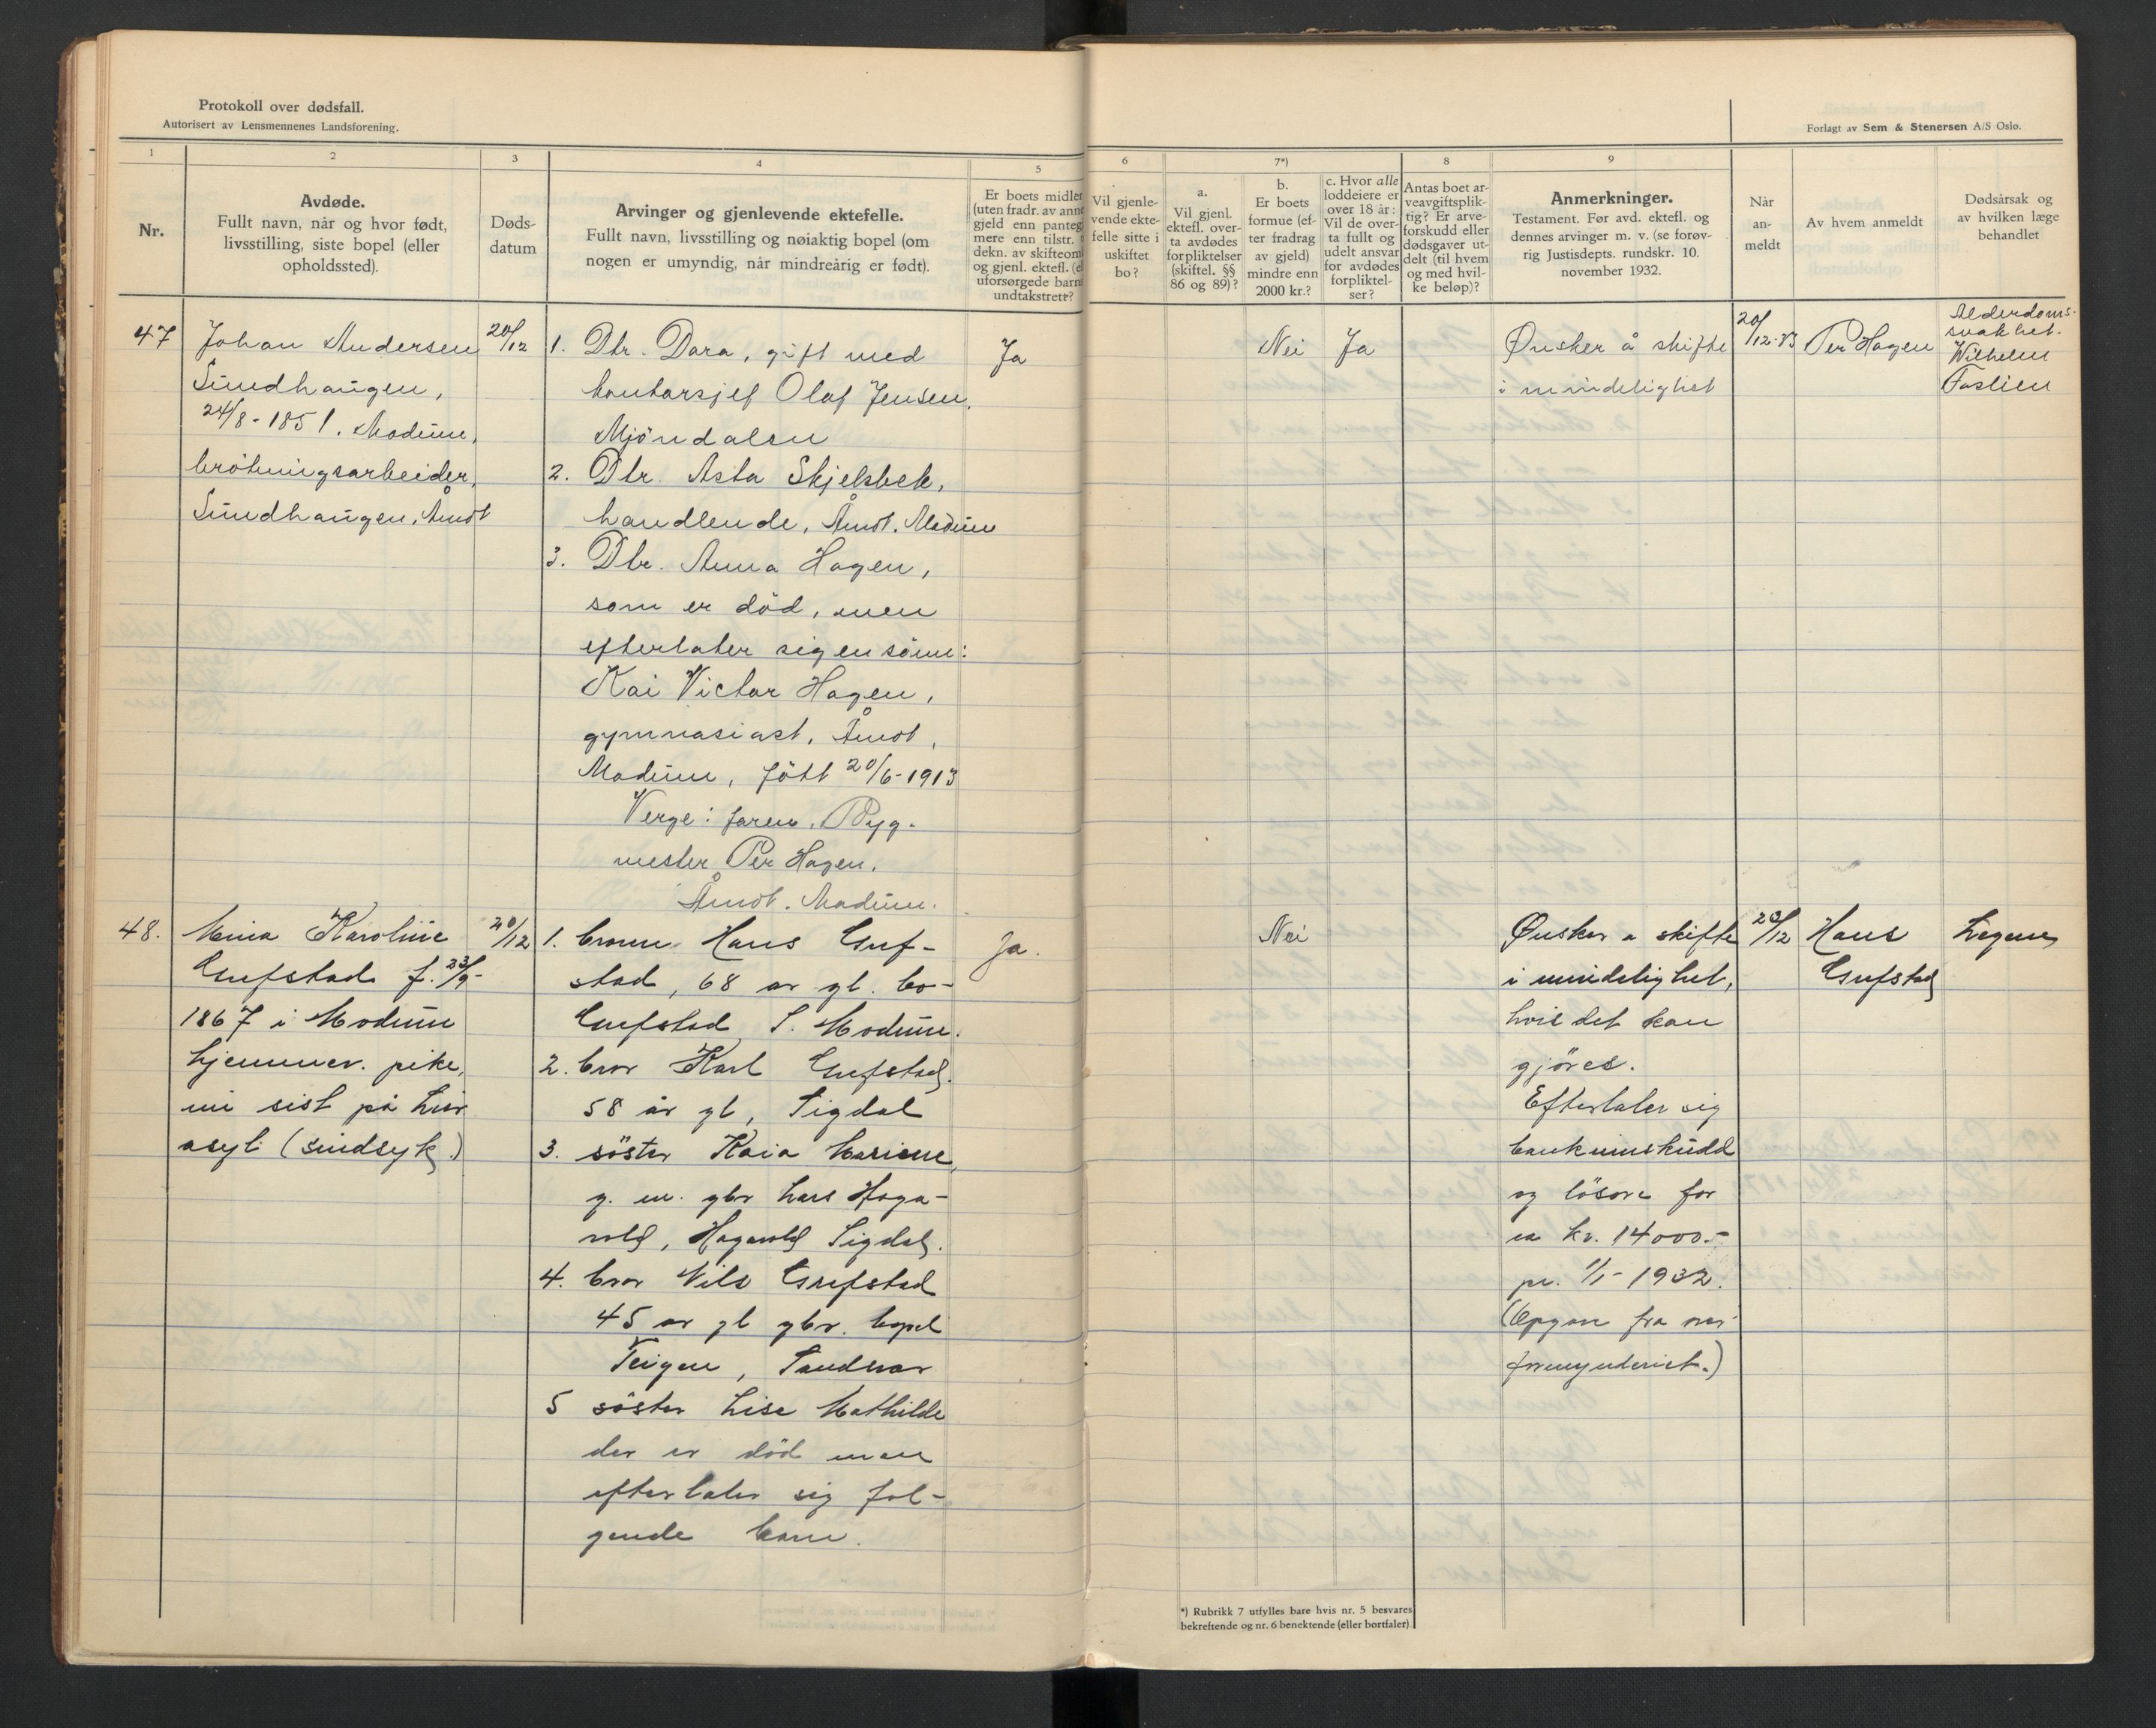 Protokoll over dødsfall.
Autorisert av Lensmennenes Landsforening.
Forlagt av Sem & Stenersen A/S Oslo.
1
Nr.
2
Avdøde.
Fullt navn, når og hvor født,
livsstilling, siste bopel (eller
opholdssted).
3
Døds-
datum
4
Arvinger og gjenlevende ektefelle.
Fullt navn, livsstilling og nøiaktig bopel (om
nogen er umyndig, når mindreårig er født).
5
Er boets midler
(uten fradr. av
gjeld enn
mere enn tilstr.
dekn. av
og gjenl. ektefl.
uforsørgede barns
undtakstrett?
6
Vil gjenle-
vende ekte-
felle sitte i
uskiftet
bo?
7*)
a.
Vil gjenl.
ektefl. over-
ta avdødes
forpliktelser
(skiftel. §§
86 og 89)?
b.
Er boets
formue (ef-
ter fradrag
av gjeld)
mindre enn
2000 kr.?
c. Hvor alle
loddeiere er
over 18 år:
Vil de over-
ta fullt og
udelt ansvar
for avdødes
forpliktel-
ser?
8
Antas boet ar-
veavgiftsplik-
tig? Er arve-
forskudd eller
dødsgaver ut-
delt (til hvem
og med hvil-
ke beløp)?
9
Anmerkninger.
Testament. Før avd. ektefl. og
dennes arvinger m. v. (se forøv-
rig Justisdepts. rundskr. 10.
november 1932.
Når
an-
meldt
Av hvem anmeldt
Dødsårsak og
av hvilken læge
behandlet
47
Johan Andersen
Sundhaugen,
24/8-1851. Modum,
brötningsarbeider,
Sundhaugen, Åmot
20/12
1. Dtr. Dora, gift med
kontorsjef Olaf Jensen,
Mjöndalen
2. Dtr. Asta Skjelsbek,
handlende, Åmot. Modum
3. Dtr. Anna Hagen,
som er död, men
efterlater sig en sönn:
Kai Victor Hagen,
gymnasiast, Åmot,
Modum, född 20/6-1913
Verge: faren, Byg-
mester Per Hagen,
Åmot. Modum.
Ja
Nei
Ja
Ønsker å skifte
i mindelighet
20/12-33
Per Hagen
Alderdoms-
svakhet.
Wilhelm
Faslien
48.
Mina Karoline
Grefstad f. 23/9-
1867 i Modum
hjemmev. pike,
nu sist på Lier
asyl (sindsyk)
20/12
1. bror Hans Gref-
stad, 68 ar gl. bo-
Grefstad S. Modum.
2. bror Karl Grefstad,
58 år gl, Sigdal
3. söster Kaia Mariene,
g. m. gbr Lars Haga-
vold, Hagavold Sigdal.
4. bror Nils Grefstad
45 ar gl gbr. bopel
Teigen, Sandsvær
5 söster Lise Mathilde
der er död men
efterlater sig föl-
gende barn.
Ja.
Nei
Ønsker a skifte
i mindelighet,
hvis det kan
gjöres.
Efterlater sig
bankinnskudd
og lösöre for
ca kr. 14000.-
pr. 1/1-1932.
(Opgave fra over-
formynderiet.)
20/12
Hans
Grefstad
*) Rubrikk 7 utfylles bare hvis nr. 5 besvares
bekreftende og nr. 6 benektende (eller bortfaler).